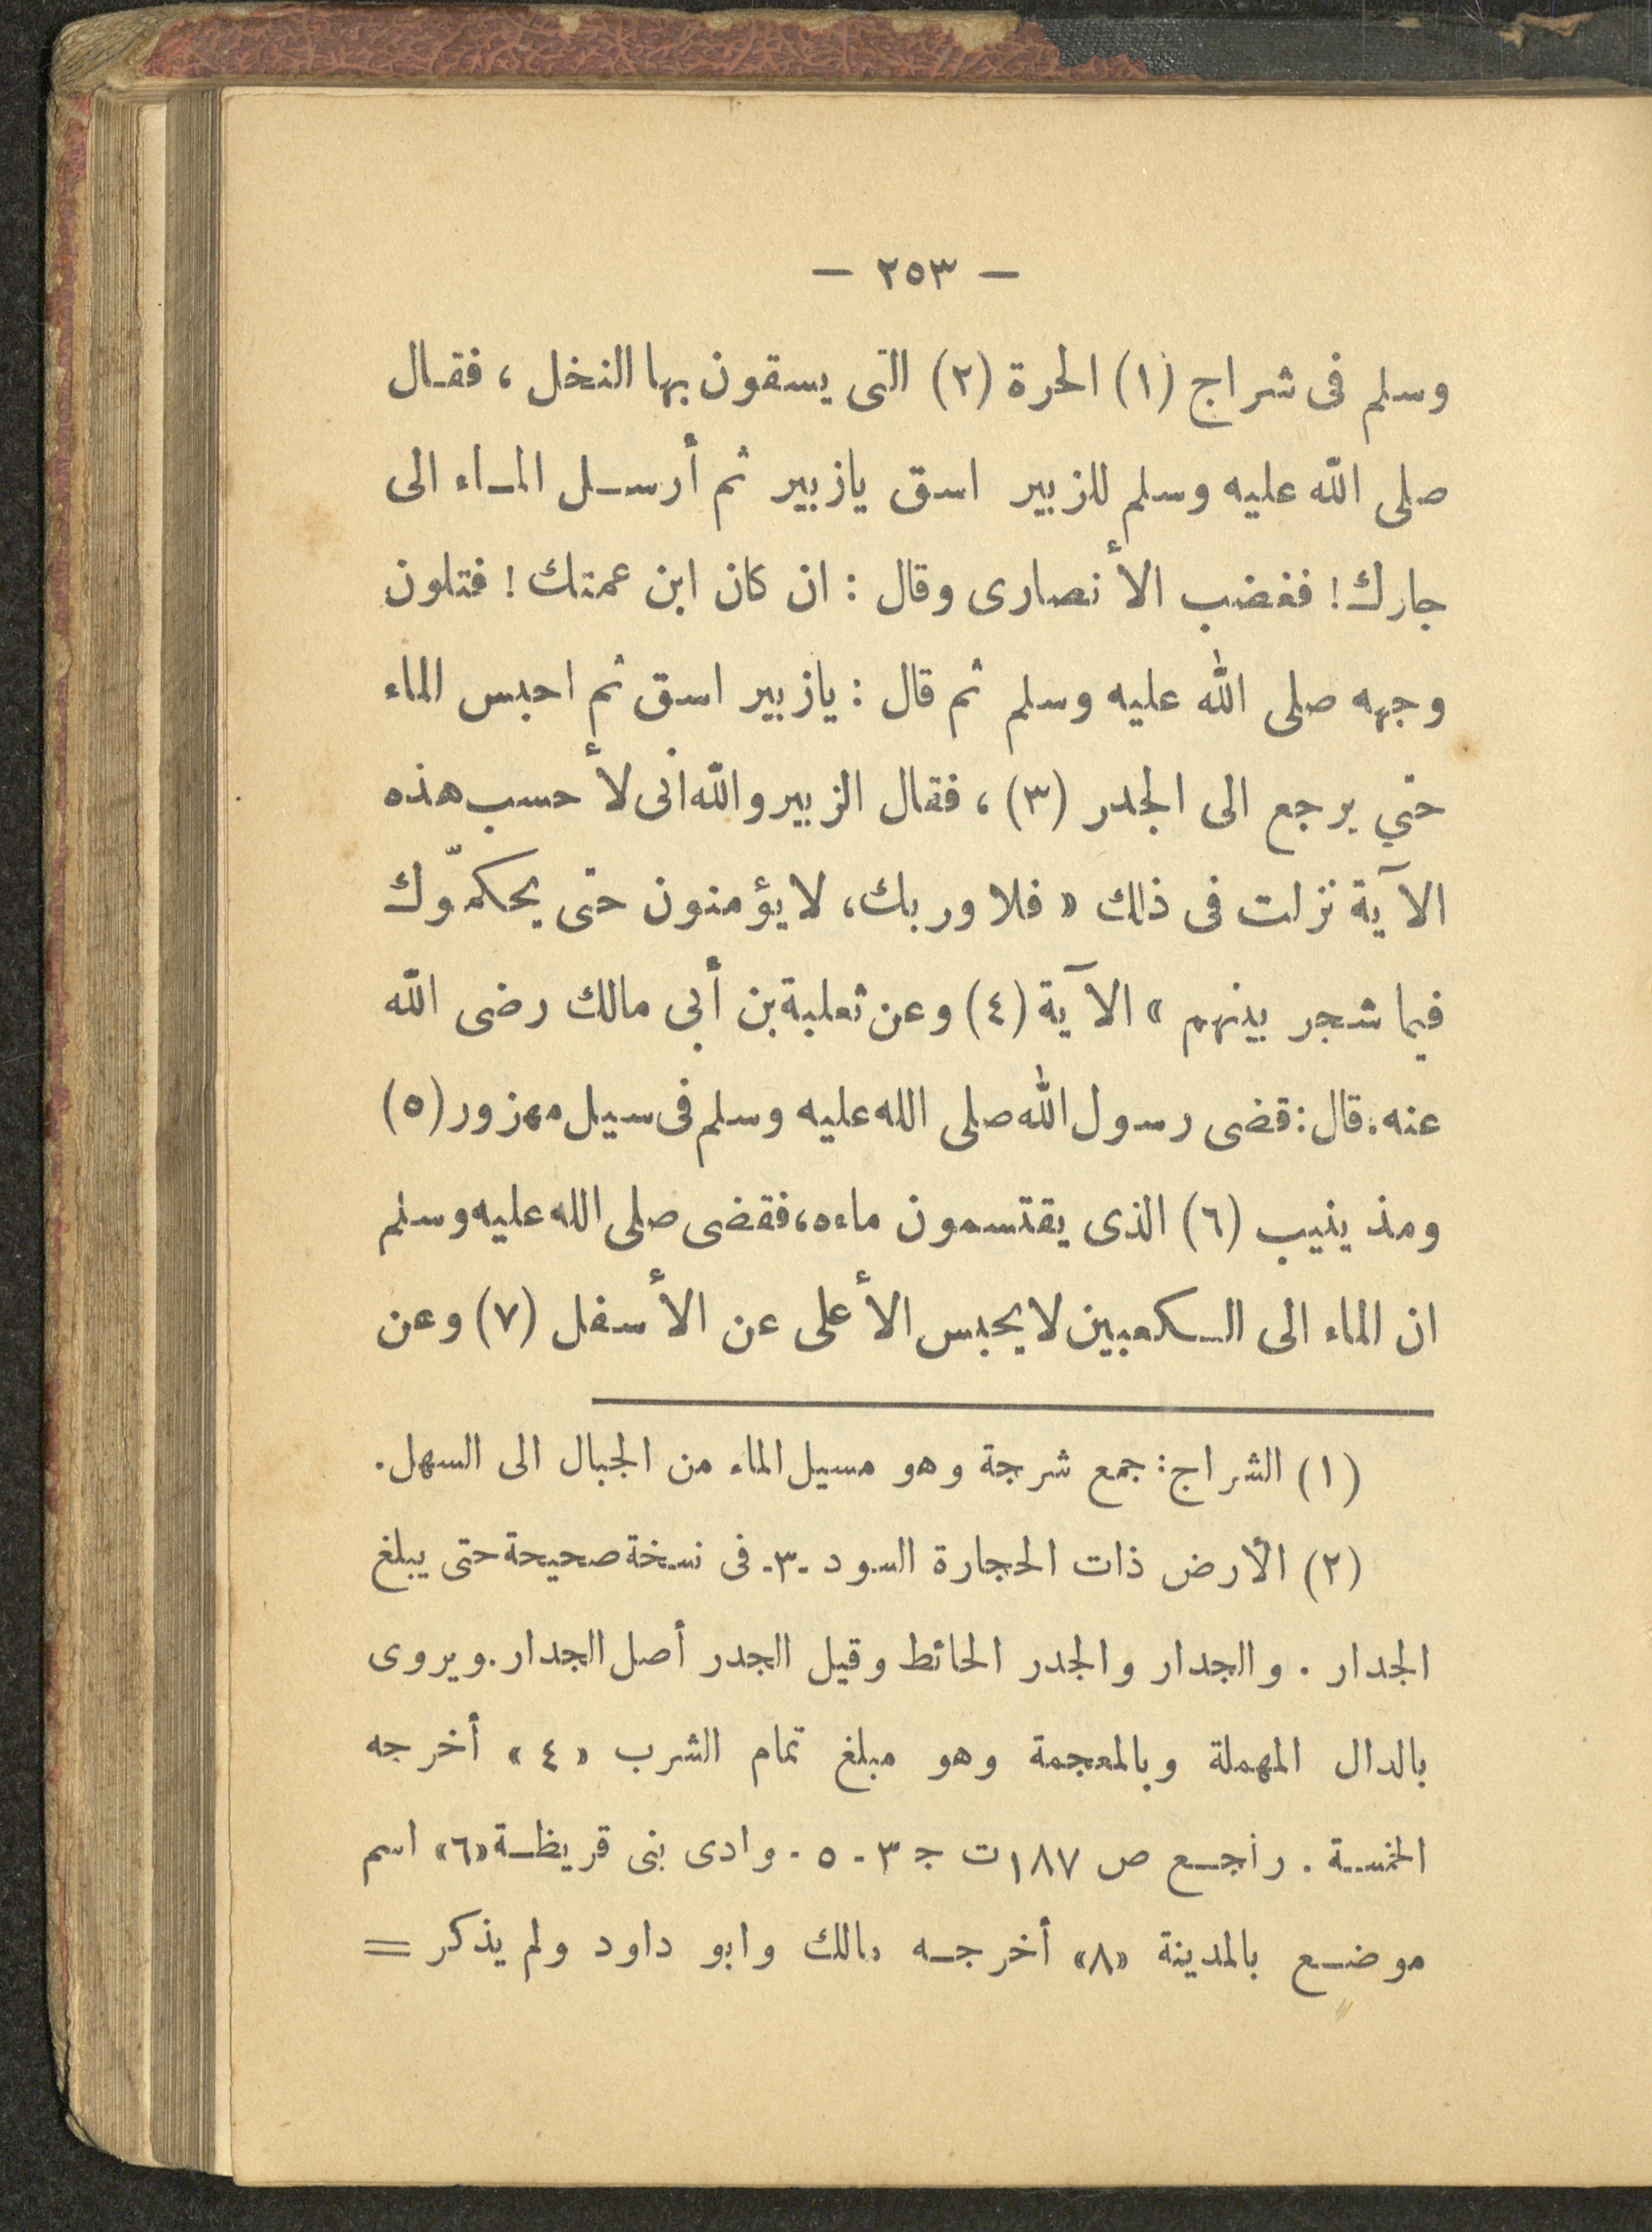 — ٢٥٣ —
وسلم فى شراج (١) الحرة (٢) التى يسقون بها النخل ، فقال
صلى الله عليه وسلم للزبير اسق يازبير ثم أرسل الماء الى
جارك! فغضب الأنصارى وقال : ان كان ابن عمتك ! فتلون
وجهه صلى الله عليه وسلم ثم قال : يازبير اسق ثم احبس الماء
حتي يرجع الى الجدر (٣) ، فقال الزبير والله انى لأحسب هذه
الآية نزلت فى ذلك « فلا وربك ، لايؤمنون حتى يحكمّوك
فيما شجر بينهم » الآية (٤) وعن ثعلبة بن أبى مالك رضى الله
عنه . قال : قضى رسول الله صلى الله عليه وسلم فى سيل مهزور (٥)
ومذينيب (٦) الذى يقتسمون ماءه ، فقضى صلى الله عليه وسلم
ان الماء الى الكعبين لايحبس الأعلى عن الأسفل (٧) وعن
(١) الشراج : جمع شرجة وهو مسيل الماء من الجبال الى السهل .
(٢) الأرض ذات الحجارة السود -٣- فى نسخة صحيحة حتى يبلغ
الجدار . والجدار والجدر الحائط وقيل الجدر أصل الجدار . ويروى
بالدال المهملة وبالمعجمة وهو مبلغ تمام الشرب «٤» أخرجه
الخمسة . راجع ص ١٨٧ت ج ٣ - ٥ - وادى بنى قريظة «٦» اسم
موضع بالمدينة «٨» أخرجه مالك وابو داود ولم يذكر =